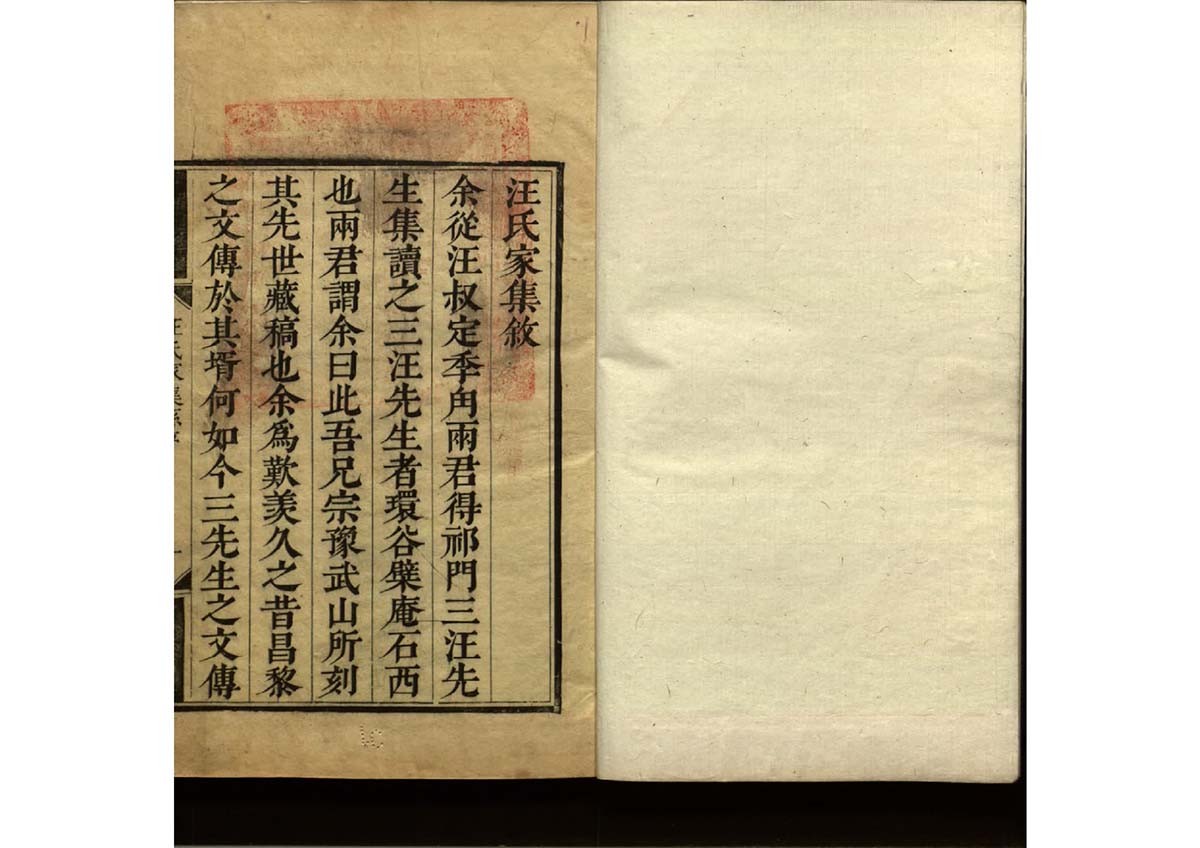 汪氏家集敘
余從汪叔定季甪兩君得祁門三汪先
生集讀之三汪先生者環谷檗庵石西
也兩君謂余曰此吾兄宗豫武山所刻
其先世藏稿也余爲歎羨久之昔昌黎
之文傳於其壻何如今三先生之文傳
汪氏家集